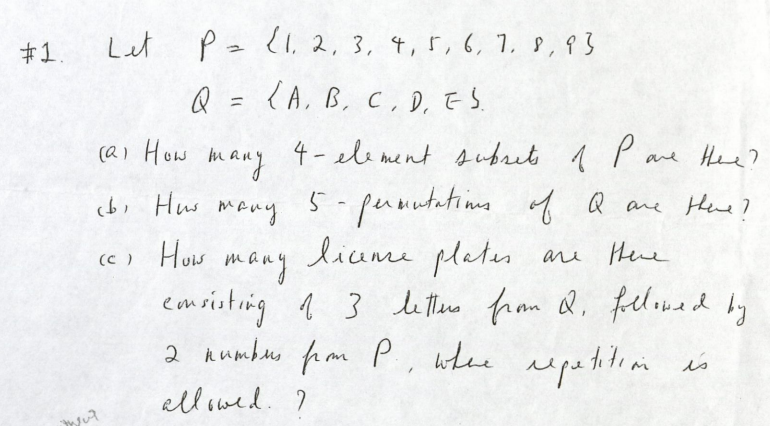 #1. Let P = {1, 2, 3, 4, 5, 6, 7, 8, 9}
Q = {A, B, C, D, E}
(a) How many 4-element subsets of P are there?
(b) How many 5-permutations of Q are there?
(c) How many license plates are there
consisting of 3 letters from Q, followed by
2 numbers from P, where repetition is
allowed. ?